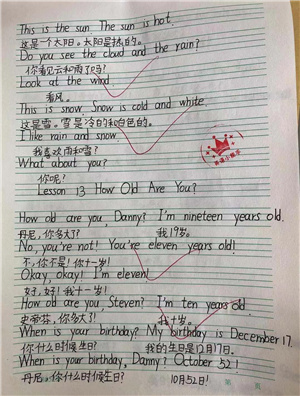 This is the sun. The sun is hot.
这是个太阳。太阳是热的。
Do you see the cloud and the rain?
你看见云和雨了吗?
Look at the wind
看风。
This is snow. Snow is cold and white.
这是雪。雪是冷的和白色的。
I like rain and snow.
我喜欢雨和雪?
What about you?
你呢?
Lesson 13 How Old Are You?
How old are you, Danny? I'm nineteen years old.
丹尼,你多大了? 我19岁。
No, you're not! You're eleven years old!
不,你不是!你十一岁!
Okay, okay! I'm eleven!
好,好!我十一岁!
How old are you, Steven? I'm ten years old
史帝芬,你多大了! 我十岁。
When is your birthday? My birthday is December 17.
你什么时候生日? 我的生日是12月17日。
When is your birthday, Danny? October 52!
丹尼,你什么时候生日? 10月52日!